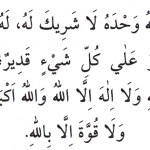 وَحْدَهُ لَا شَرِيكَ لَهُ، لَهُ
عَلٰي كُلِّ شَيْءٍ قَدِيرٌ
وَلَا إِلٰهَ إِلَّا اللهُ وَاللهُ أَكْبَ
وَلَا قُوَّةَ إِلَّا بِاللهِ.